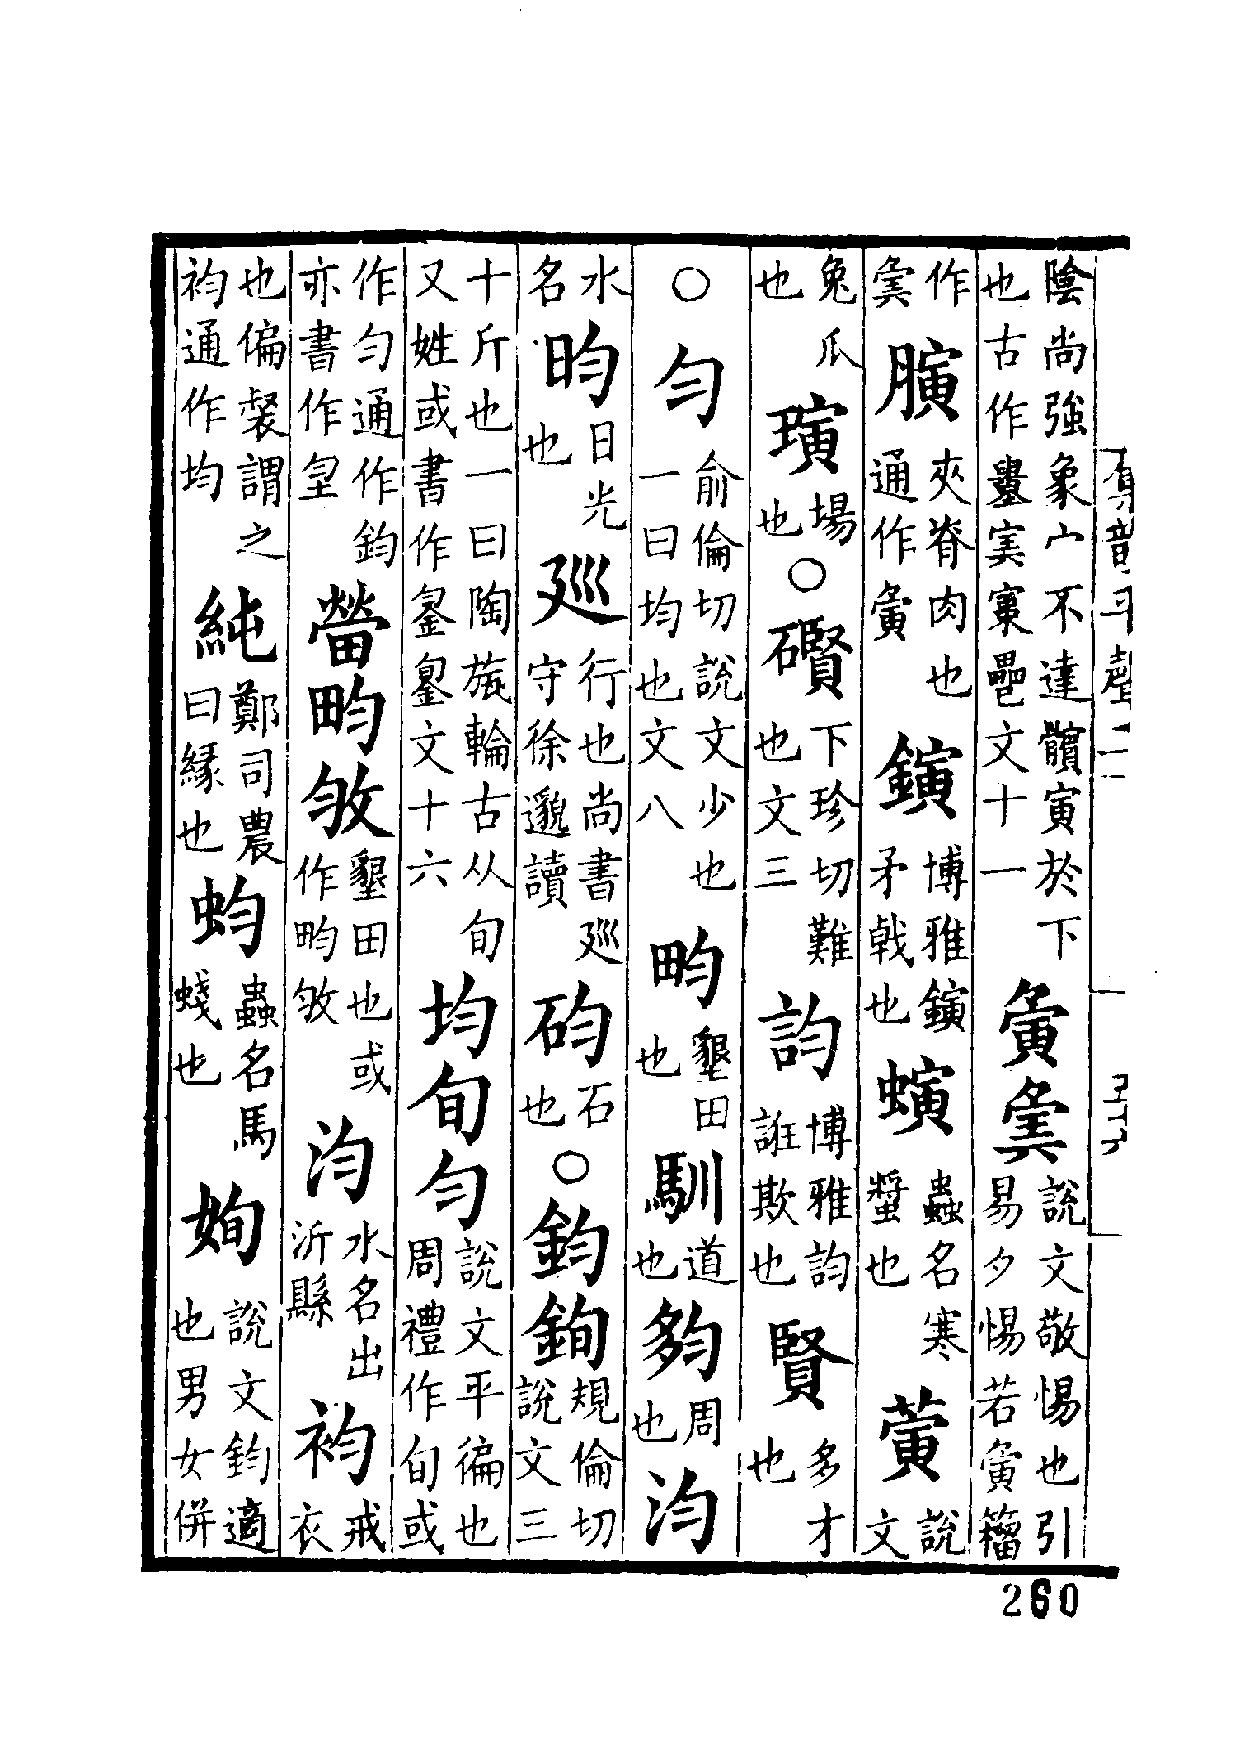 陰尚強象宀不達髕寅於下也古作文十一夤說文敬惕也引易夕惕若夤籀
作夾脊肉也通作夤鏔博雅鏔矛戟也螾蟲名寒螿也說文
兔瓜也場也○礥下珍切難也文三博雅誑欺也賢多才也
○匀俞倫切說文少也一曰均也文八畇墾田也馴道也周也汮
水名昀日光也廵行也尚書廵守徐邈讀石也○鈞銁規倫切說文三
十斤也一曰陶旊輪古从旬又姓或書作文十六均旬匀說文平徧也周禮作旬或
作匀通作鈞亦書作畇墾田也或作畇汮水名出沂縣袀戒衣
也偏裻謂之袀通作均純鄭司農曰緣也蚐蟲名馬也姰說文鈞適也男女併
260